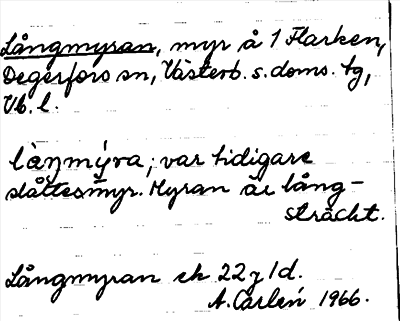 Långmyran, myr å 1 Flarken,
Degerfors sn, Västerb. s. doms. tg,
Vb. l.
làŋmýra; var tidigare
slåttesmyr. Myran är lång-
sträckt.
Långmyran ek 22 7 1d.
A. Carlén 1966.